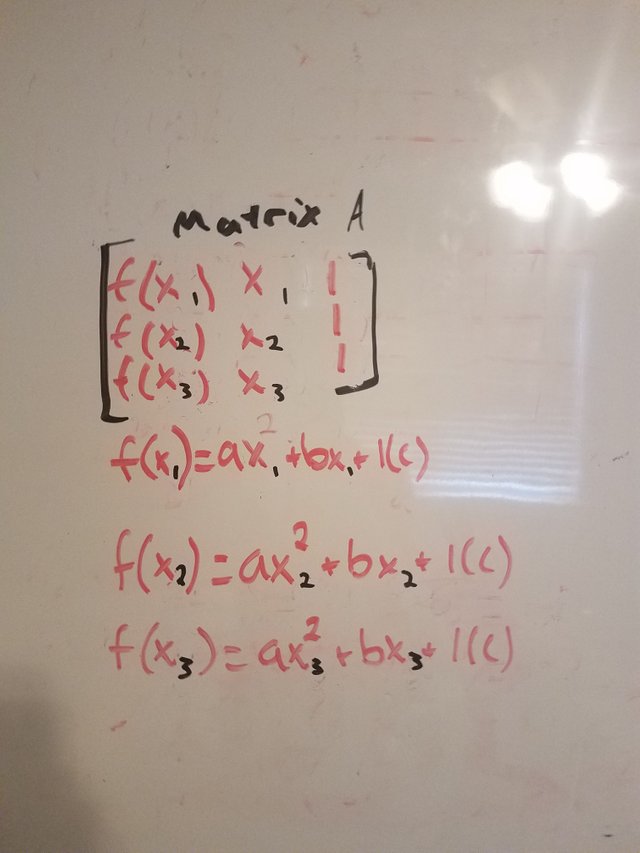 Matrix A
f(x₁) x₁ 1
f(x₂) x₂ 1
f(x₃) x₃ 1
f(x₁)=ax₁²+bx₁+1(c)
f(x₂)=ax₂²+bx₂+1(c)
f(x₃)=ax₃²+bx₃+1(c)